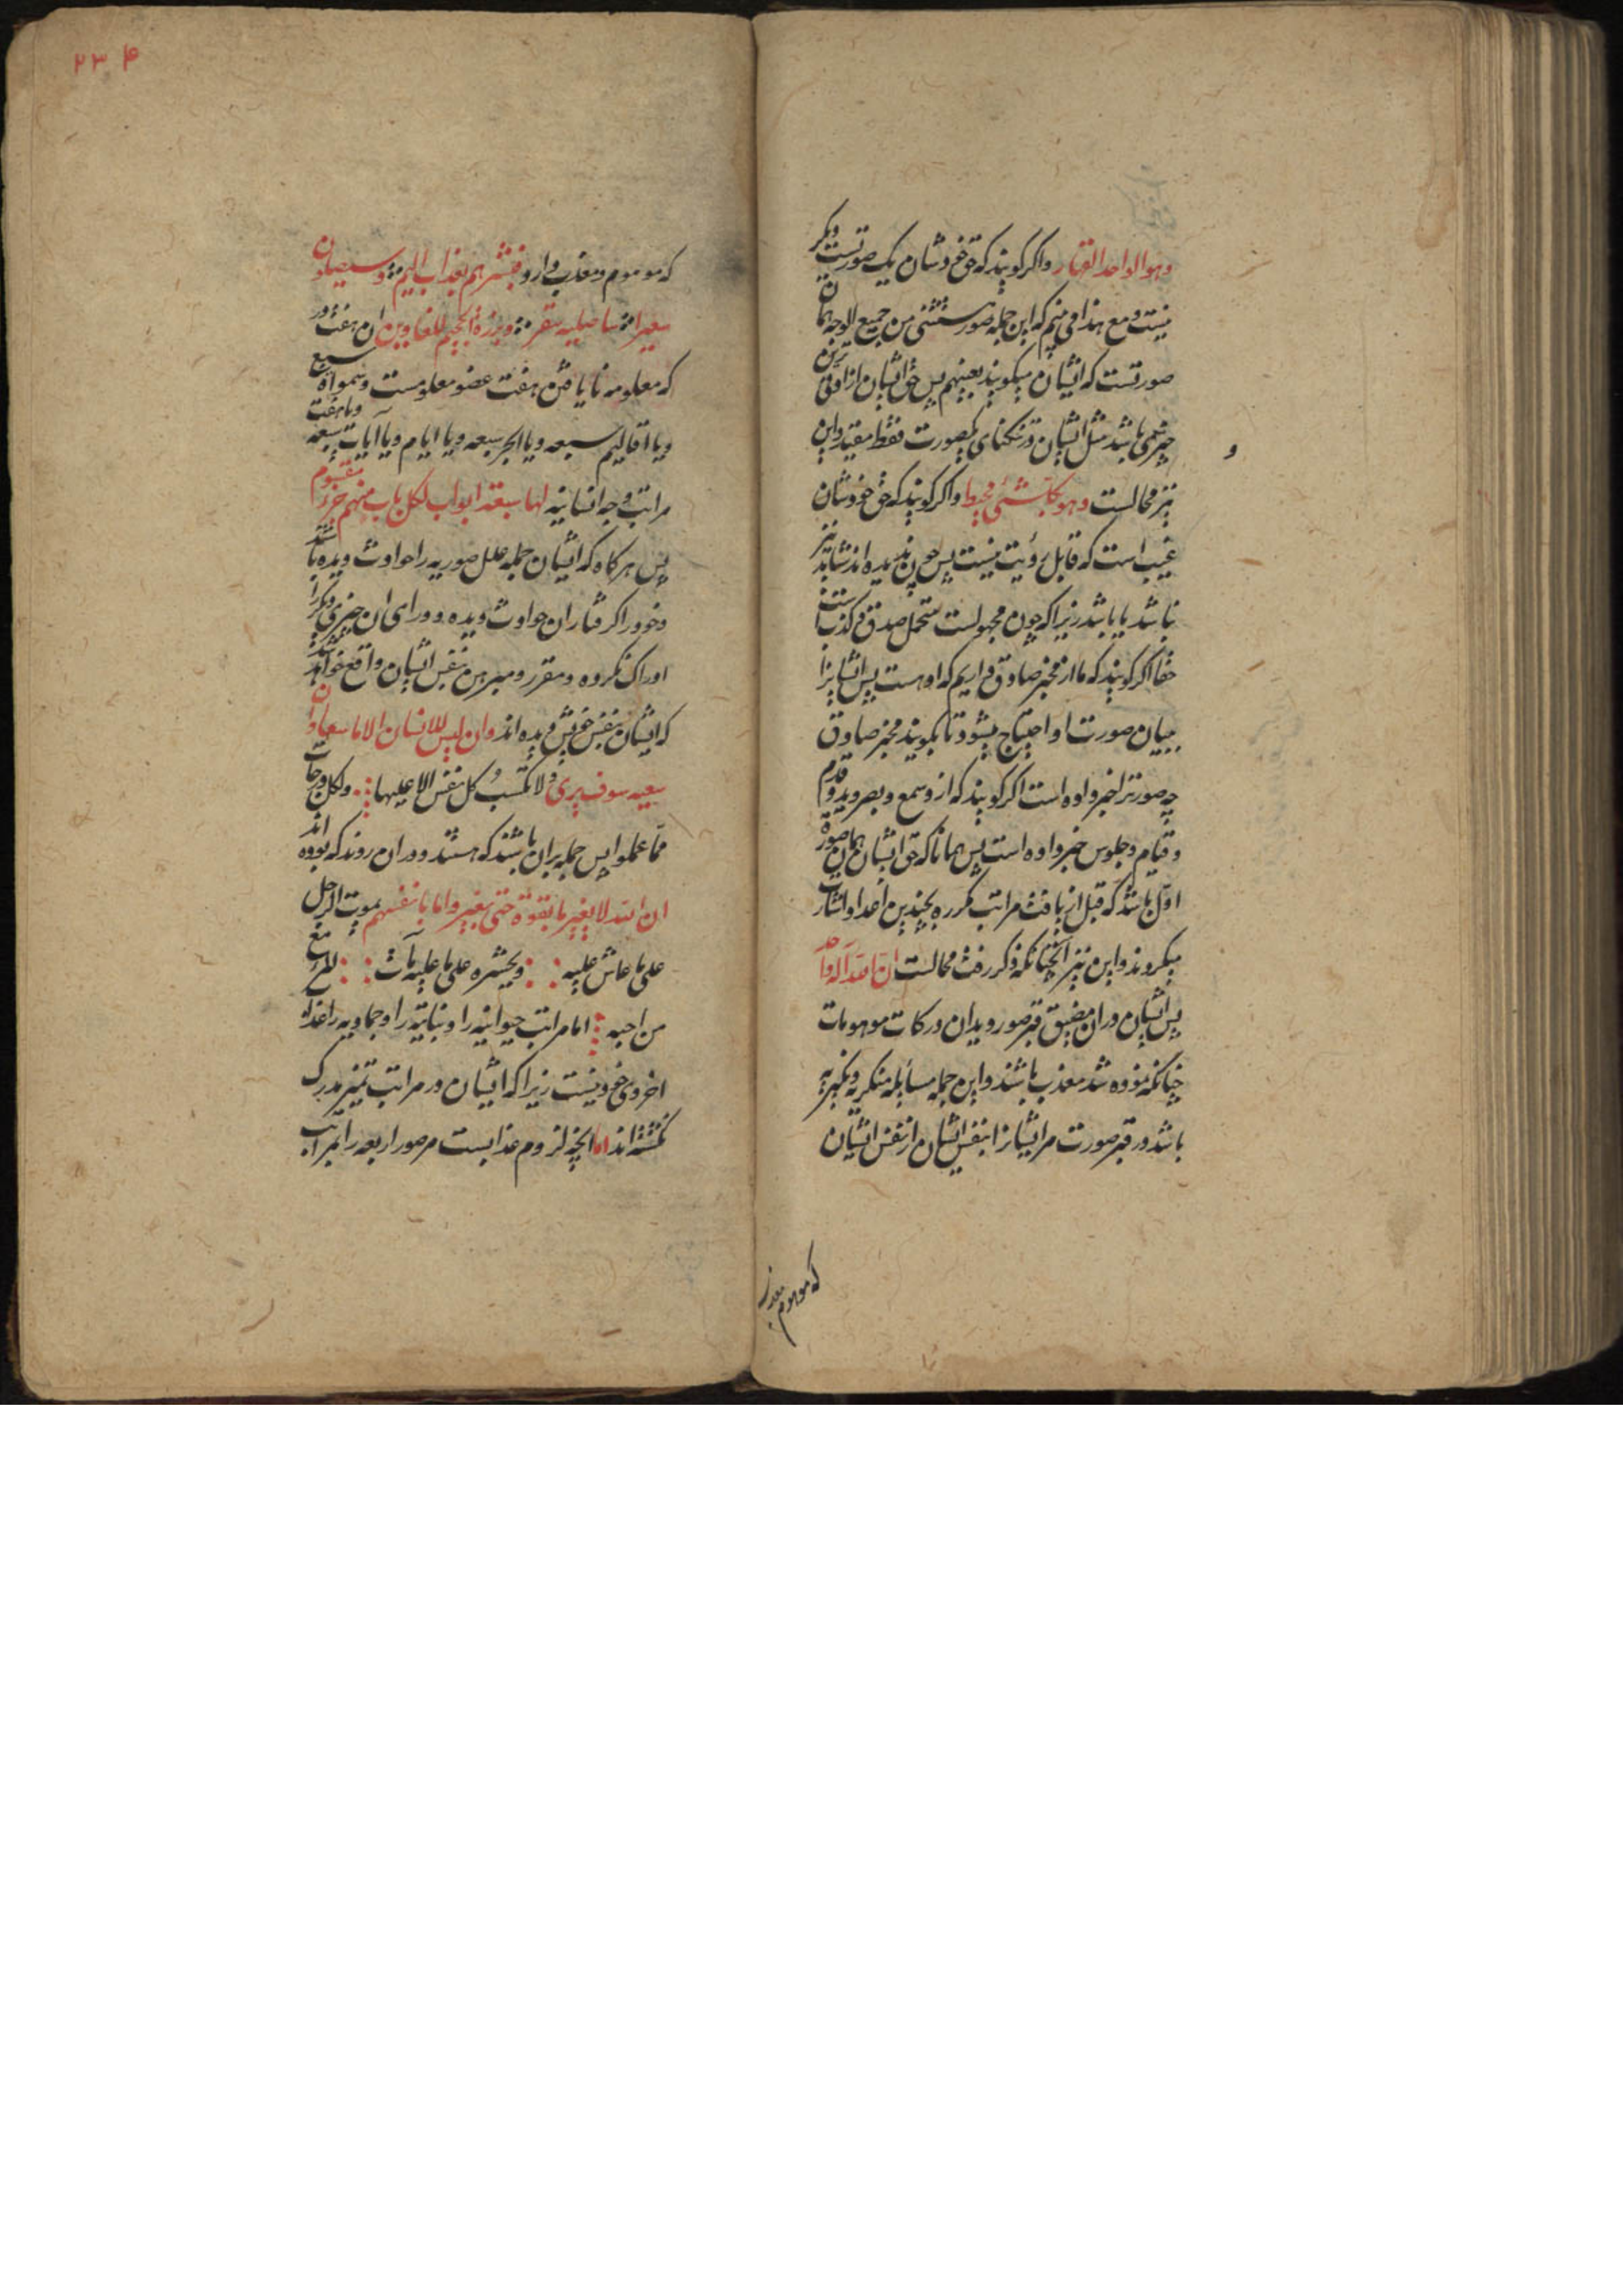 وهو الواحد القهار واکر کویند که حق خود شان یک صورتست دیکر
نیست و مع هذا می بینم که این جمله صور مستثنی من جمیع الوجه همان
صورتست که ایشان میکویند بعینهم پس حق ایشان از
چیز نمی باشد مثل ایشان در تنکنمای یکصورت فقط مقید و این
نیز محالست وهو بکل شیء محیط واکر کویند که حق خود شان
غیب است که قابل رؤیت نیست پس چون ندیده اند شاید نیز
نباشد یا باشد زیرا که چون مجهولست متحمل صدق و کذب است
حقا اکر کویند که ما از مخبر صادق داریم که او هست پس ایشانرا
ببیان صورت او احتیاج بیشود تا بکویند مخبر صادق
چه صورترا خبر داده است اکر کویند که از وسمع و بصر و ید و قدم
و قیام و جلوس خبر داده است پس همانا که حق ایشان همان صورة
اول باشد که قبل از یافت مراتب مکرره بچندین اعداد اشارت
میکردند و این نیز انچنانکه ذکر رفت محالست ان الله اله واحد
پس ایشان در ان مضیق قبر صور و بدان درکات موهومات
چنانکه نموده شد معذب باشند و این جمله مسایله منکریه و نکیریه
باشد در قبر صورت مرایشانرا بنفس ایشان از نفس ایشان
که موهوم معذب
۲۳۴
که موهوم و معذب دارد فبشرهم بعذاب الیم وسیصلون
سعیرا ساصلیه سقر وبرزة الجحیم للغاوین ان هفت در
که معلومه نایافتن هفت عضو معلومست وسموات سبع
ویا اقالیم سبعه ویا ابحر سبعه ویا ایام ویا آیات سبعه ویا هفت
مراتب وجه انسانیه لها سبعة ابواب لکل باب منهم جزء مقسوم
پس هرکاه که ایشان جمله علل صوریه را حوادث دیده باشند
وخود را کرفتار ان حوادث دیده و ورای ان چیزی دیکر را
ادراک نکرده ومقرر و مبرهن بنفس ایشان واقع خواهد شد
که ایشان بنفس خویش دیده اند وان لیس للانسان الا ما سعی وان
سعیه سوف یری ولا تکسب کل نفس الا علیها ولکل درجات
مما عملوا پس جمله بران باشند که هستند و دران روند که بوده اند
ان الله لا یغیر ما بقوة حتی یغیروا ما بانفسهم یموت الرجل
علی ما عاش علیه ویحشره علی ما علیه مات المرء مع
من احبه اما مراتب حیوانیه را و نباتیه را و جمادیه را عذاب
اخروی خود نیست زیرا که ایشان در مراتب تمیز مدرک
نکشته اند اما انچه لزوم عذابست مر صور اربعه را بمراتب